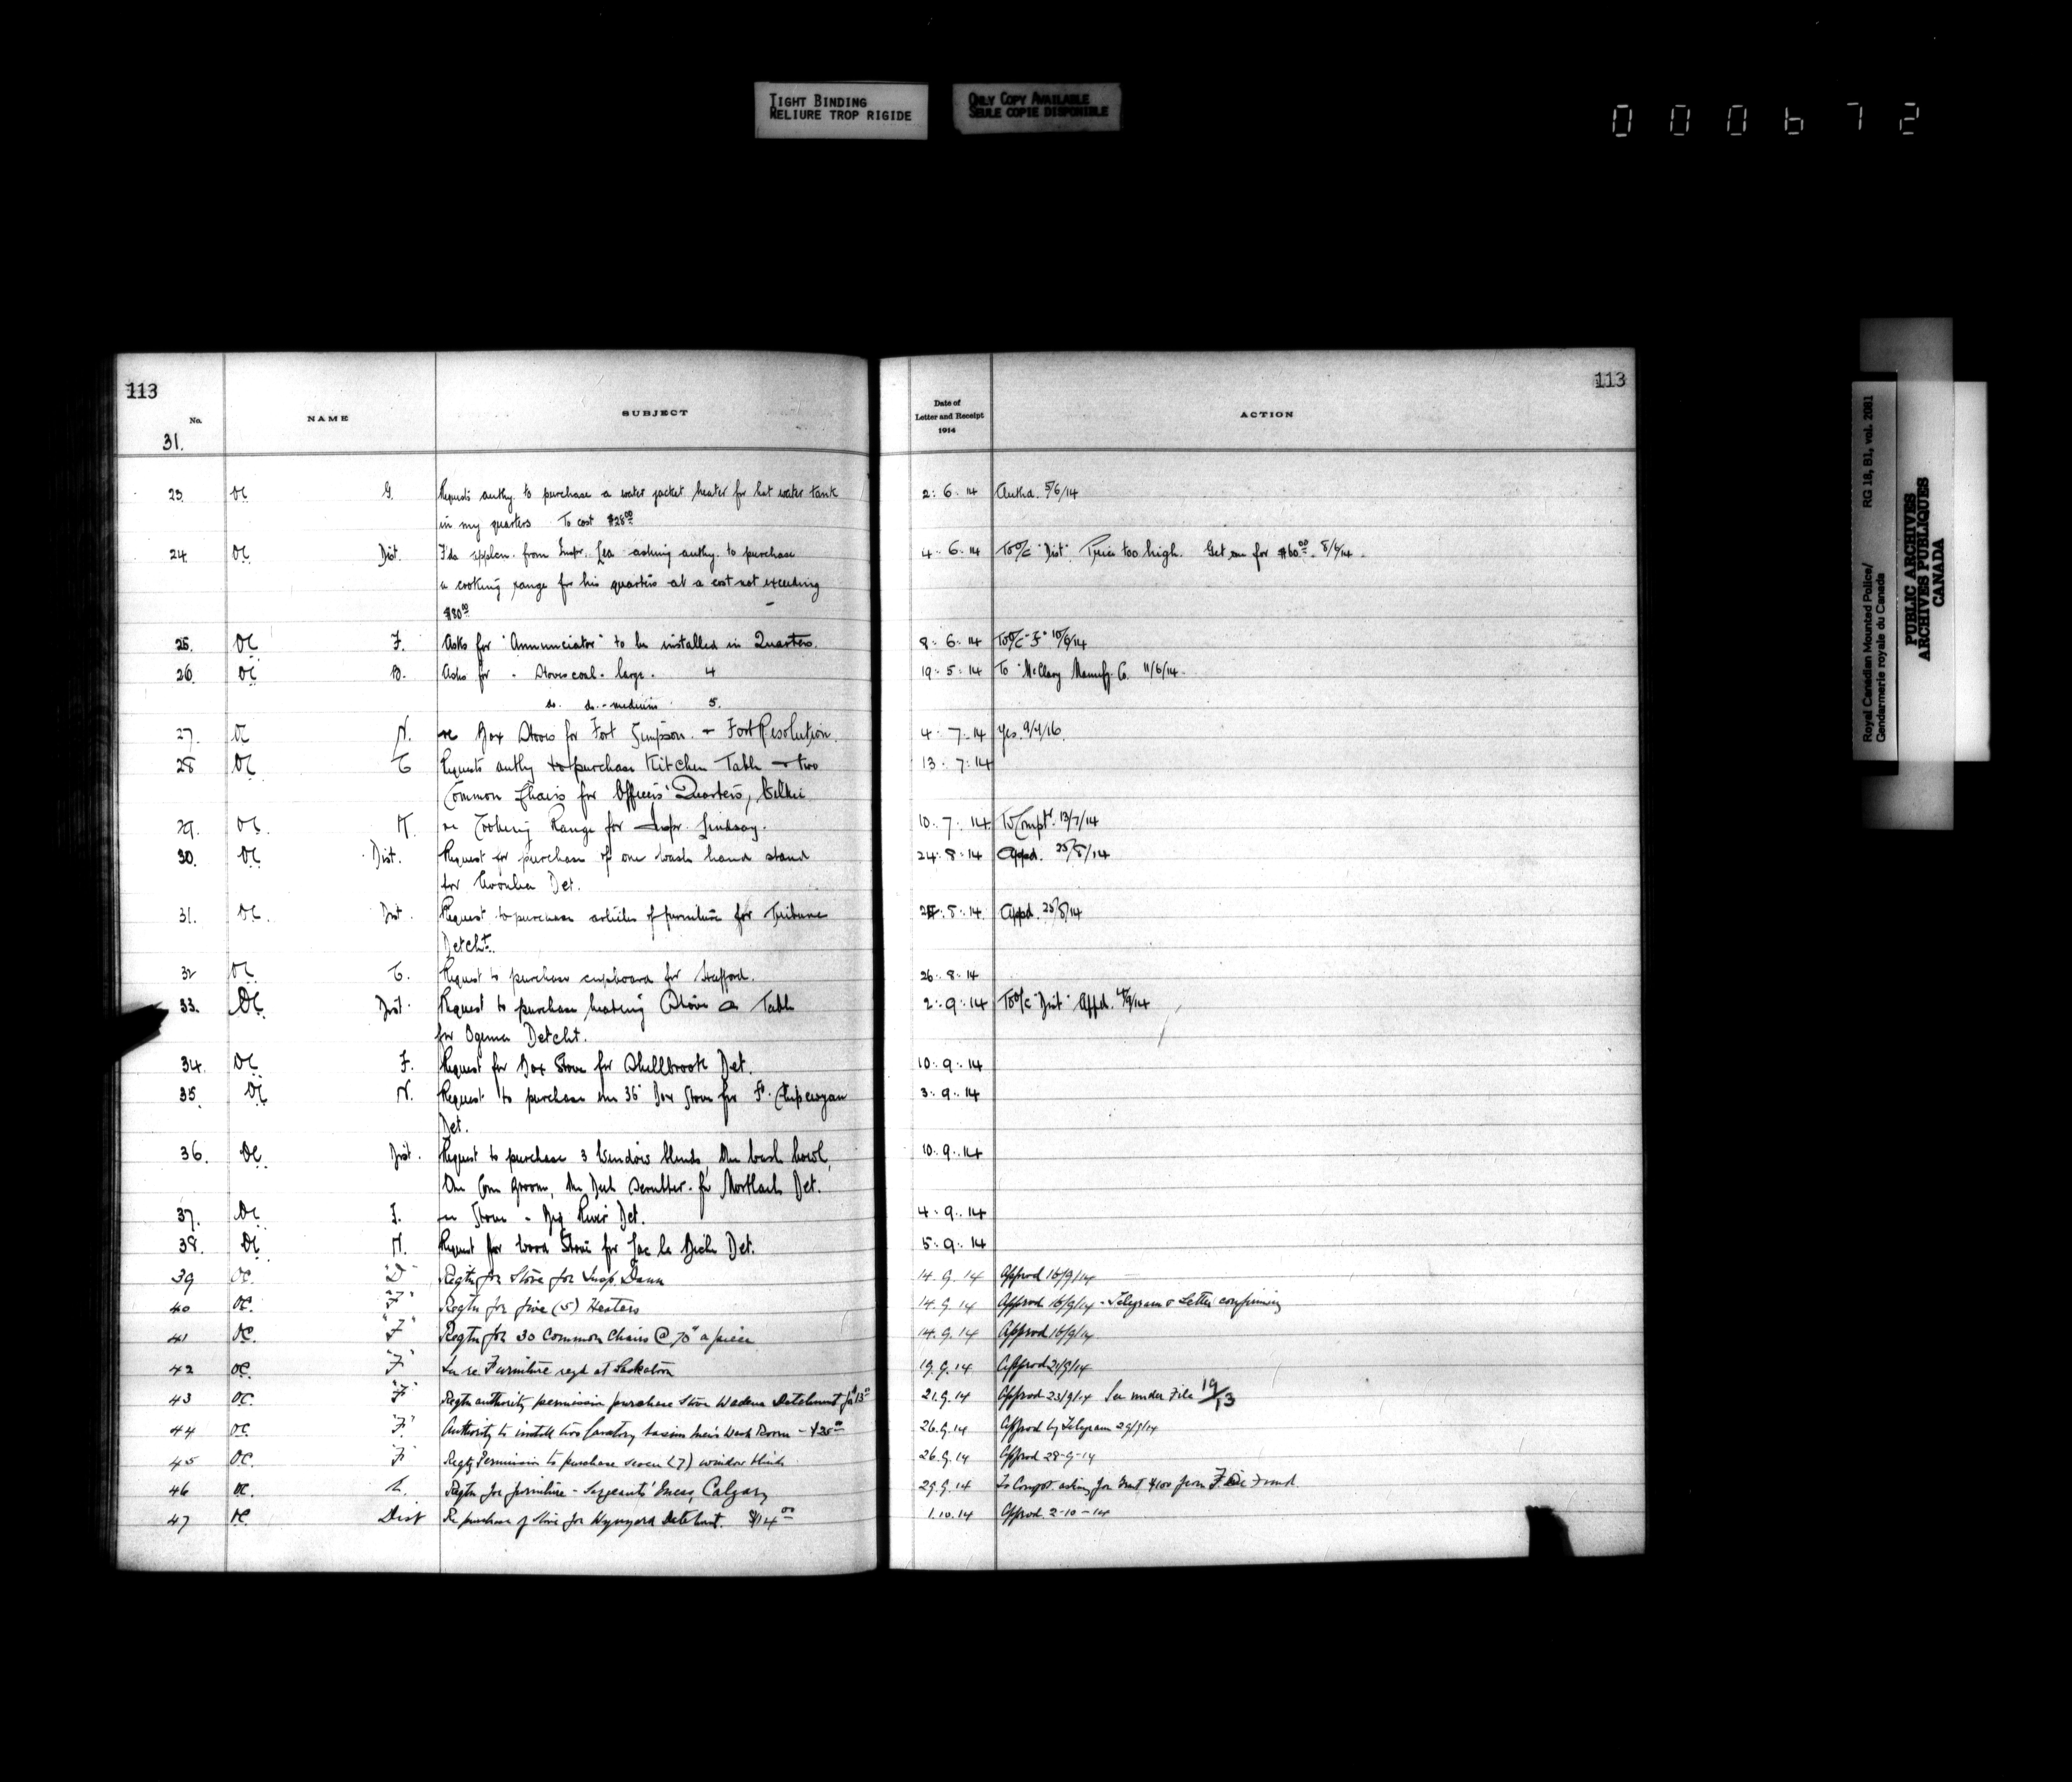 TIGHT BINDING
RELIURE TROP RIGIDE
ONLY COPY AVAILABLE
SEULE COPIE DISPONIBLE
000672
113
No.
NAME
SUBJECT
31.
23. OC G. Requests authy. to purchase a water jacket heater for hot water tank
in my quarters To cost $28.00
24. OC Dist. from Inspr. Lea asking authy. to purchase
a cooking range for his quarters at a cost not exceeding
$80.00
25. OC F. Asks for "Annunciator" to be installed in Quarters.
26. OC D. Asks for - Stoves coal - large - 4
do. do. - medium 5.
27. OC N. re Box Stoves for Fort Simpson - + Fort Resolution.
28 OC C Requests authy to purchase Kitchen Table + two
Common Chairs for Officers' Quarters,
29. OC. K. re Cooking Range for Inspr. Lindsay.
30. OC. Dist. Request for purchase of one wash hand stand
for Det.
31. OC. Dist. Request to purchase articles of furniture for Tribune
Detcht.
32 OC. C. Request to purchase cupboard for Strafford.
33. OC. Dist. Request to purchase heating Stove & Table
for Ogema Detcht.
34. OC F. Request for Box Stove for Shellbrook Det.
35. OC N. Request to purchase one 36" Box Stove for Ft. Chipewyan
Det.
36. OC. Dist. Request to purchase 3 Window blinds, One wash bowl,
One Corn Broom, One Deck Scrubber - for Mortlach Det.
37. OC F. re Stove - Big River Det.
38. OC N. Request for Wood Stove for Lac la Biche Det.
39 OC. "D" Regtn for Stove for Insp. Dann
40 OC. "F" Regtn for five (5) Heaters
41 OC. "F" Regtn for 30 Common Chairs @ 70¢ apiece
42 OC. "F" In re Furniture reqd at Saskatoon
43 OC. "F" Regtn authority permission purchase Stove Wadena Detachment for $13.00
44 OC "F" Authority to install two lavatory basins men's Wash Room - $35.00
45 OC. "F" Regtg Permission to purchase seven (7) window blinds
46 OC. E. Regtn for furniture - Sergeants' Mess, Calgary
47 OC. Dist Re purchase of Stove for Wynyard Detchmt. $14.00
113
Date of
Letter and Receipt
1914
ACTION
2. 6. 14 Authd. 5/6/14
4. 6. 14 To O/C "Dist" Price too high. Get one for $60.00. 8/6/14.
8. 6. 14 To O/C "F" 10/6/14
19. 5. 14 To McClary Manufg. Co. 11/6/14.
4. 7. 14 Yes. 9/4/16.
13. 7. 14
10. 7. 14 To Comptr. 13/7/14
24. 8. 14 Appd. 25/8/14
8. 14 Appd. 25/8/14
26. 8. 14
2. 9. 14 To O/C "Dist" Appd. 4/9/14
10. 9. 14
3. 9. 14
10. 9. 14
4. 9. 14
5. 9. 14
14. 9. 14 Approd 16/9/14
14. 9. 14 Approd 16/9/14 - Telegram & Letter confirming
14. 9. 14 Approd 16/9/14
19. 9. 14 Approd 21/9/14
21. 9. 14 Approd 23/9/14 See under File 19/13
26. 9. 14 Approd by Telegram 29/9/14
26. 9. 14 Approd 28-9-14
29. 9. 14 To Compt. asking for Grant $100 from Fine Fund
1. 10. 14 Approd. 2-10-14
Royal Canadian Mounted Police/ RG 18, B1, vol. 2081
Gendarmerie royale du Canada
PUBLIC ARCHIVES
ARCHIVES PUBLIQUES
CANADA